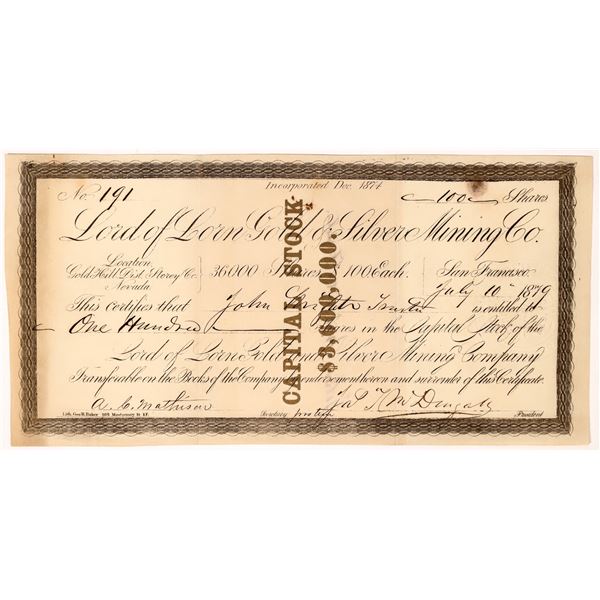 Incorporated Dec. 1874
No. 191 100 Shares
Lord of Lorn Gold & Silver Mining Co.
Location
Gold Hill Dist. Storey Co.
Nevada
36000 Shares $100 Each.
San Francisco July 10th 1879
This certifies that John Trustee is entitled to
One Hundred Shares in the Capital Stock of the
Lord of Lorn Gold and Silver Mining Company
Transferable on the Books of the Company by endorsement hereon and surrender of this Certificate.
A. C. Mathison Secretary pro tem Jas. T. McDougall President
Lith. Geo. H. Baker 408 Montgomery St. S.F.
CAPITAL STOCK
$3,600,000.